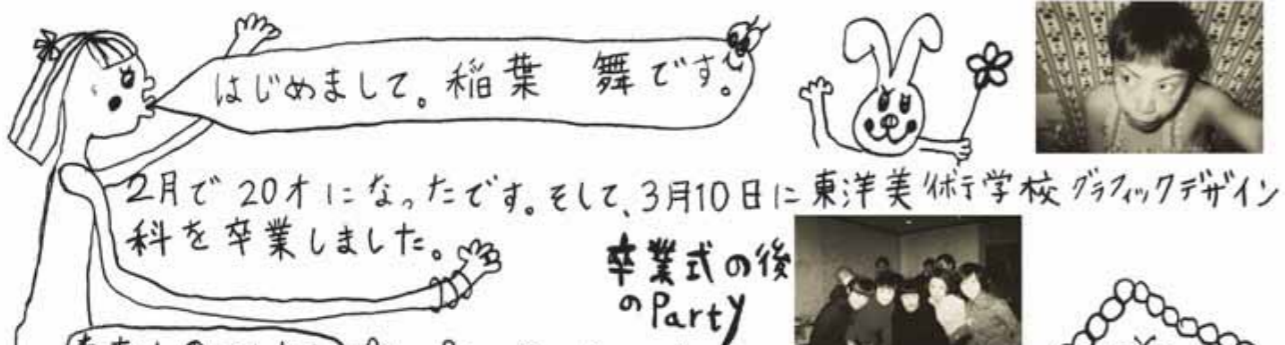 はじめまして。稲葉 舞です。
2月で20才になったです。そして、3月10日に東洋美術学校グラフィックデザイン
科を卒業しました。
卒業式の後
のParty